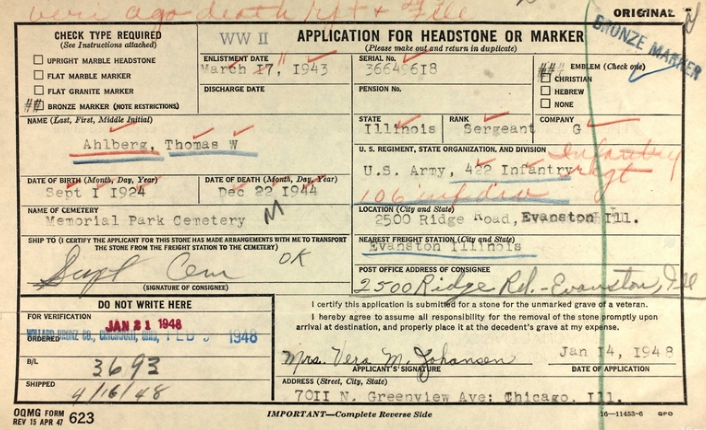 veri ago death rpt + File
ORIGINAL
BRONZE MARKER
CHECK TYPE REQUIRED
(See Instructions attached)
UPRIGHT MARBLE HEADSTONE
FLAT MARBLE MARKER
FLAT GRANITE MARKER
## BRONZE MARKER (NOTE RESTRICTIONS)
WW II
APPLICATION FOR HEADSTONE OR MARKER
(Please make out and return in duplicate)
ENLISTMENT DATE
March 17, 1943
DISCHARGE DATE
SERIAL NO.
36649618
PENSION No.
## EMBLEM (Check one)
CHRISTIAN
HEBREW
NONE
NAME (Last, First, Middle Initial)
Ahlberg, Thomas W
STATE
Illinois
RANK
Sergeant
COMPANY
G
U. S. REGIMENT, STATE ORGANIZATION, AND DIVISION
U.S. Army, 422 Infantry
Infantry
Rgt
106 inf div
DATE OF BIRTH (Month, Day, Year)
Sept 1 1924
DATE OF DEATH (Month, Day, Year)
Dec 22 1944
NAME OF CEMETERY
Memorial Park Cemetery
M
LOCATION (City and State)
2500 Ridge Road, Evanston Ill.
SHIP TO (I CERTIFY THE APPLICANT FOR THIS STONE HAS MADE ARRANGEMENTS WITH ME TO TRANSPORT
THE STONE FROM THE FREIGHT STATION TO THE CEMETERY)
Supt Cem
OK
(SIGNATURE OF CONSIGNEE)
NEAREST FREIGHT STATION (City and State)
Evanston Illinois
POST OFFICE ADDRESS OF CONSIGNEE
2500 Ridge Rd.-Evanston, Ill
DO NOT WRITE HERE
FOR VERIFICATION
JAN 21 1948
ORDERED
WILLARD BRONZ CO., CINCINNATI, OHIO, FEB 5 1948
B/L
3693
SHIPPED
4/16/48
I certify this application is submitted for a stone for the unmarked grave of a veteran.
I hereby agree to assume all responsibility for the removal of the stone promptly upon
arrival at destination, and properly place it at the decedent's grave at my expense.
Mrs. Vera M. Johansen
APPLICANT'S SIGNATURE
Jan 14, 1948
DATE OF APPLICATION
ADDRESS (Street, City, State)
7011 N. Greenview Ave: Chicago, Ill.
OQMG FORM
REV 15 APR 47 623
IMPORTANT—Complete Reverse Side
16—11453-6 GPO